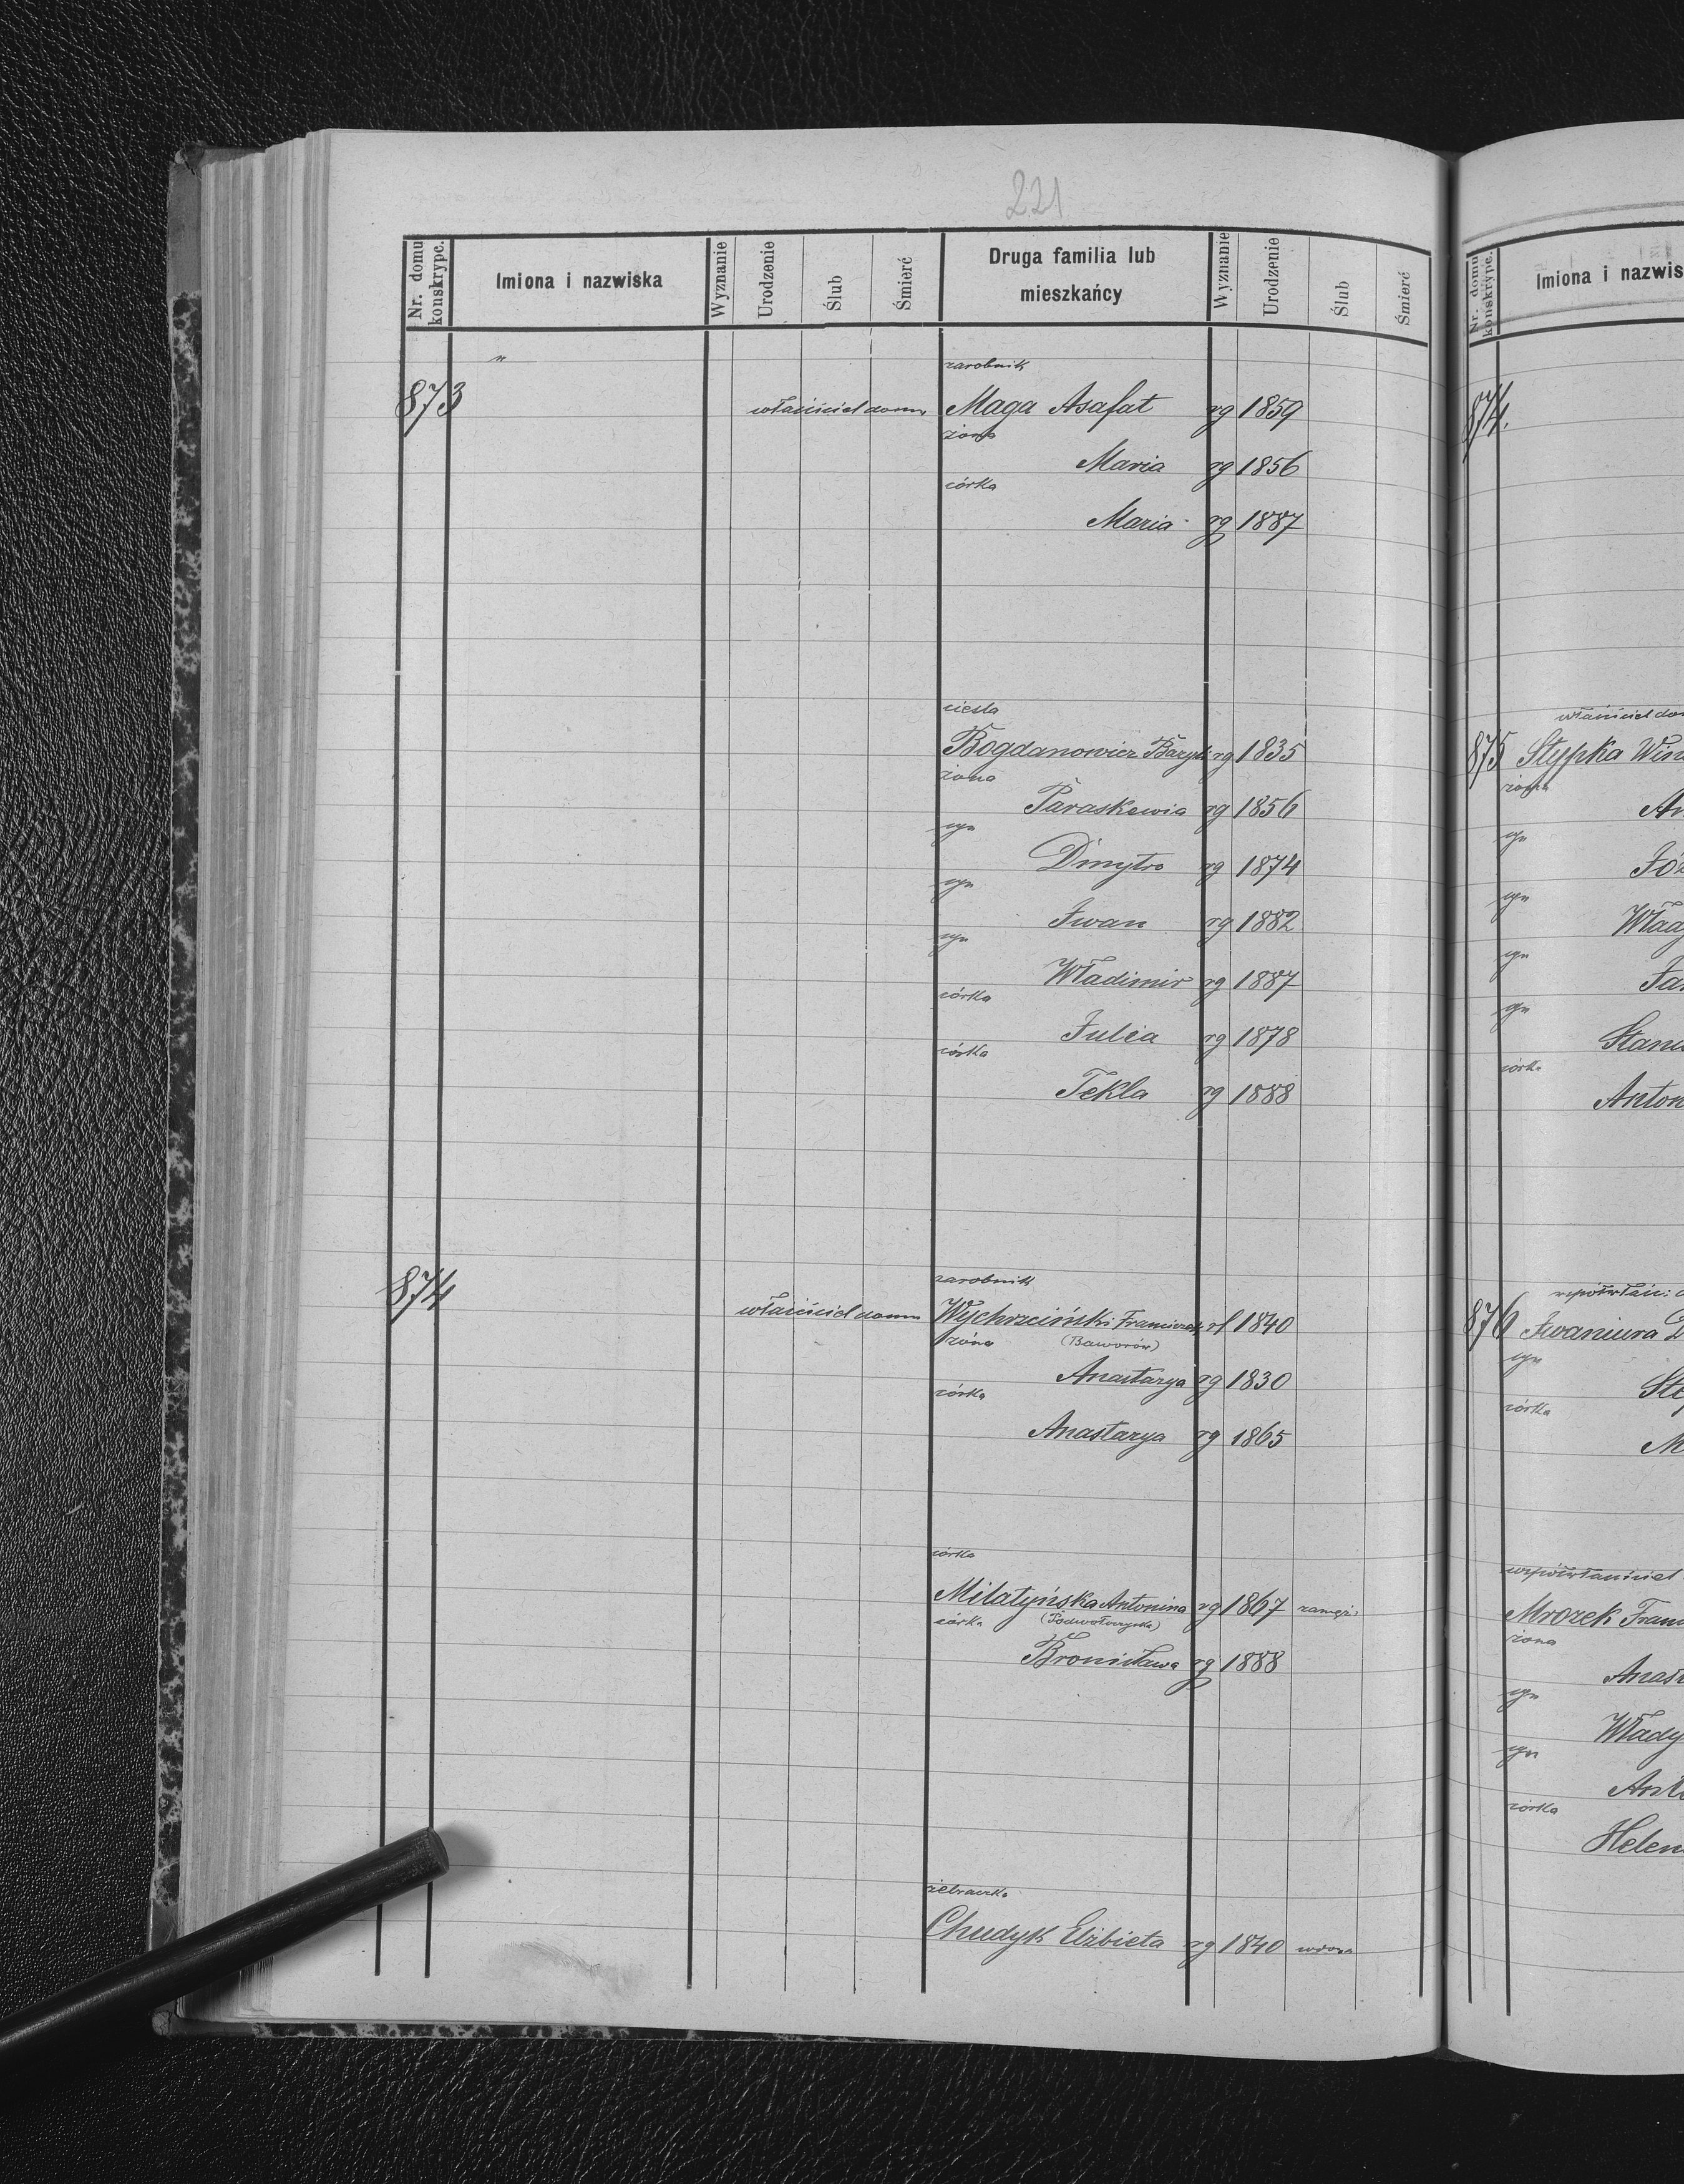 221
Nr. domu konskrypc.
Imiona i nazwiska
Wyznanie
Urodzenie
Ślub
Śmierć
Druga familia lub mieszkańcy
Wyznanie
Urodzenie
Ślub
Śmierć
"
zarobnik
873 właściciel domu Maga Asafat rg 1859
żona
Maria rg 1856
córka
Maria rg 1887
cieśla
Bogdanowicz Bazyli rg 1835
żona
Paraskewia rg 1856
syn
Dmytro rg 1874
syn
Iwan rg 1882
syn
Władimir rg 1887
córka
Julia rg 1878
córka
Tekla rg 1888
zarobnik
874 właściciel domu Wychrzciński Franciszek rl 1840
żona (Baworów)
Anastazya rg 1830
córka
Anastazya rg 1865
córka
Milatyńska Antonina rg 1867 zamęż:
córka (Podwołoczyska)
Bronisława rg 1888
żebraczka
Chudyk Elżbieta rg 1840 wdowa
Nr. domu konskrypc.
Imiona i nazwis
874.
właściciel do
875 Stypka Winc
żona
An
syn
Józ
syn
Wład
syn
Jan
syn
Stani
córka
Anton
współwłaśc: d
876 Iwaniura
syn
Ste
córka
M
współwłaściciel
Mrozek Fran
żona
Anas
syn
Włady
syn
Anto
córka
Helen